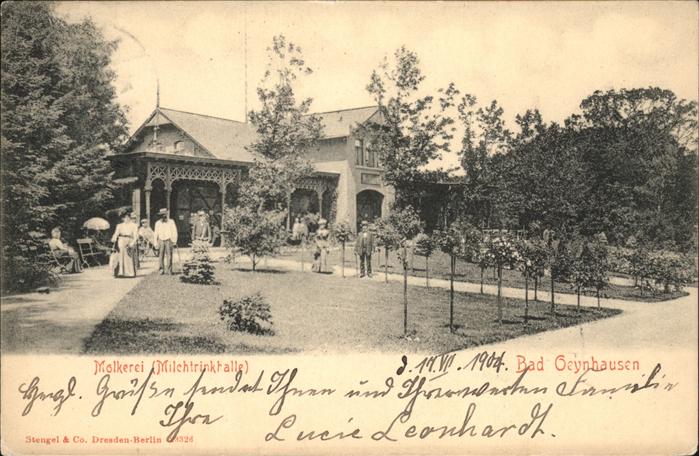 Molkerei (Milchtrinkhalle)
d. 17. VI. 1904. Bad Oeynhausen
Herzl. Grüße sendet Ihnen und Ihrer werten Familie
Ihre
Lucie Leonhardt.
Stengel & Co. Dresden-Berlin